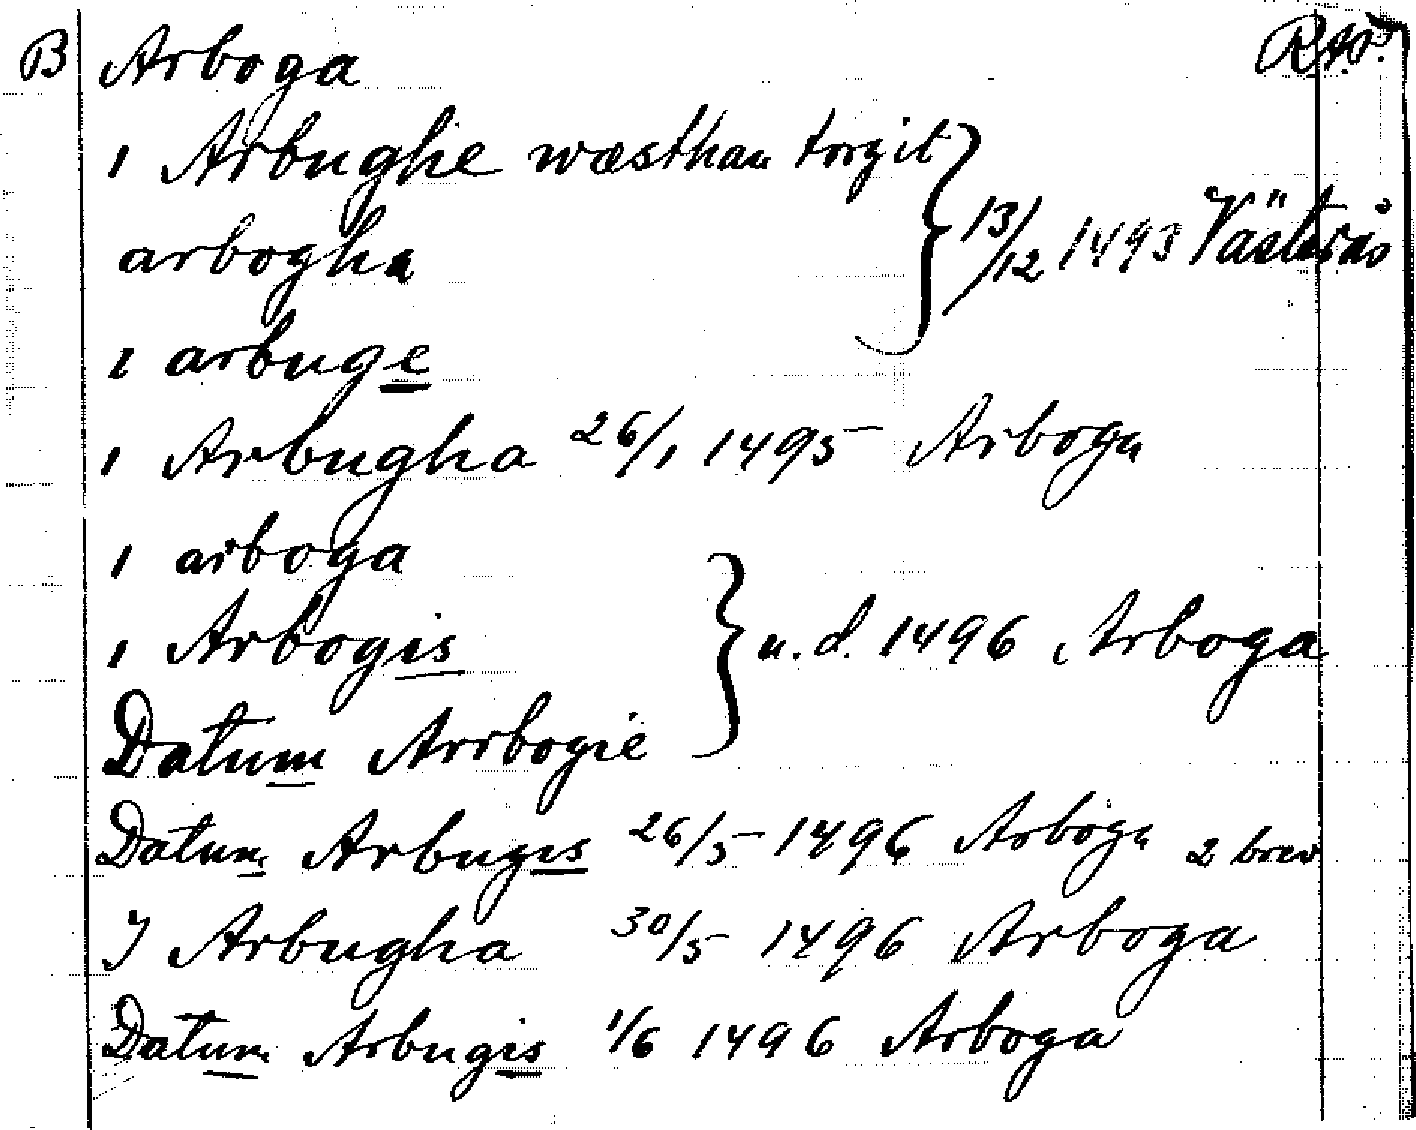 B Arboga RAP.
ı Arbughe wæsthan torgit
arbogha } 13/12 1493 Västerås
ı arbuge
ı Arbugha 26/1 1495 Arboga
ı arboga
ı Arbogis } u.d. 1496 Arboga
Datum Arrbogie
Datum Arbugis 26/5 1496 Arboga 2 brev
J Arbugha 30/5 1496 Arboga
Datum Arbugis 1/6 1496 Arboga